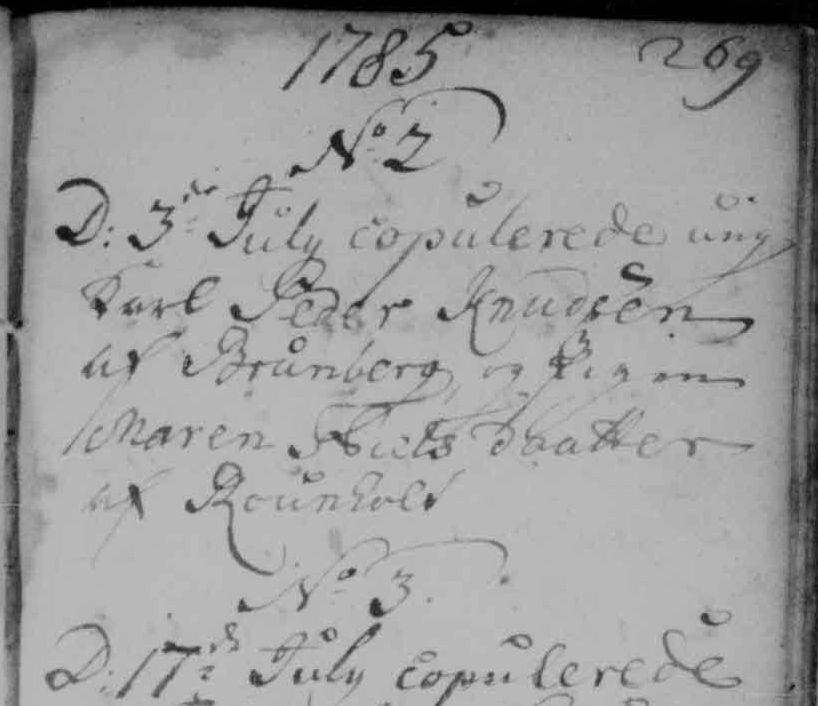 1785 269
No 2
D: 3de July copulerede ung
Karl Peder Knudsen
af Brünberg og Pigen
Maren Datter
af Rounholt
No 3.
D: 17de July copulerede